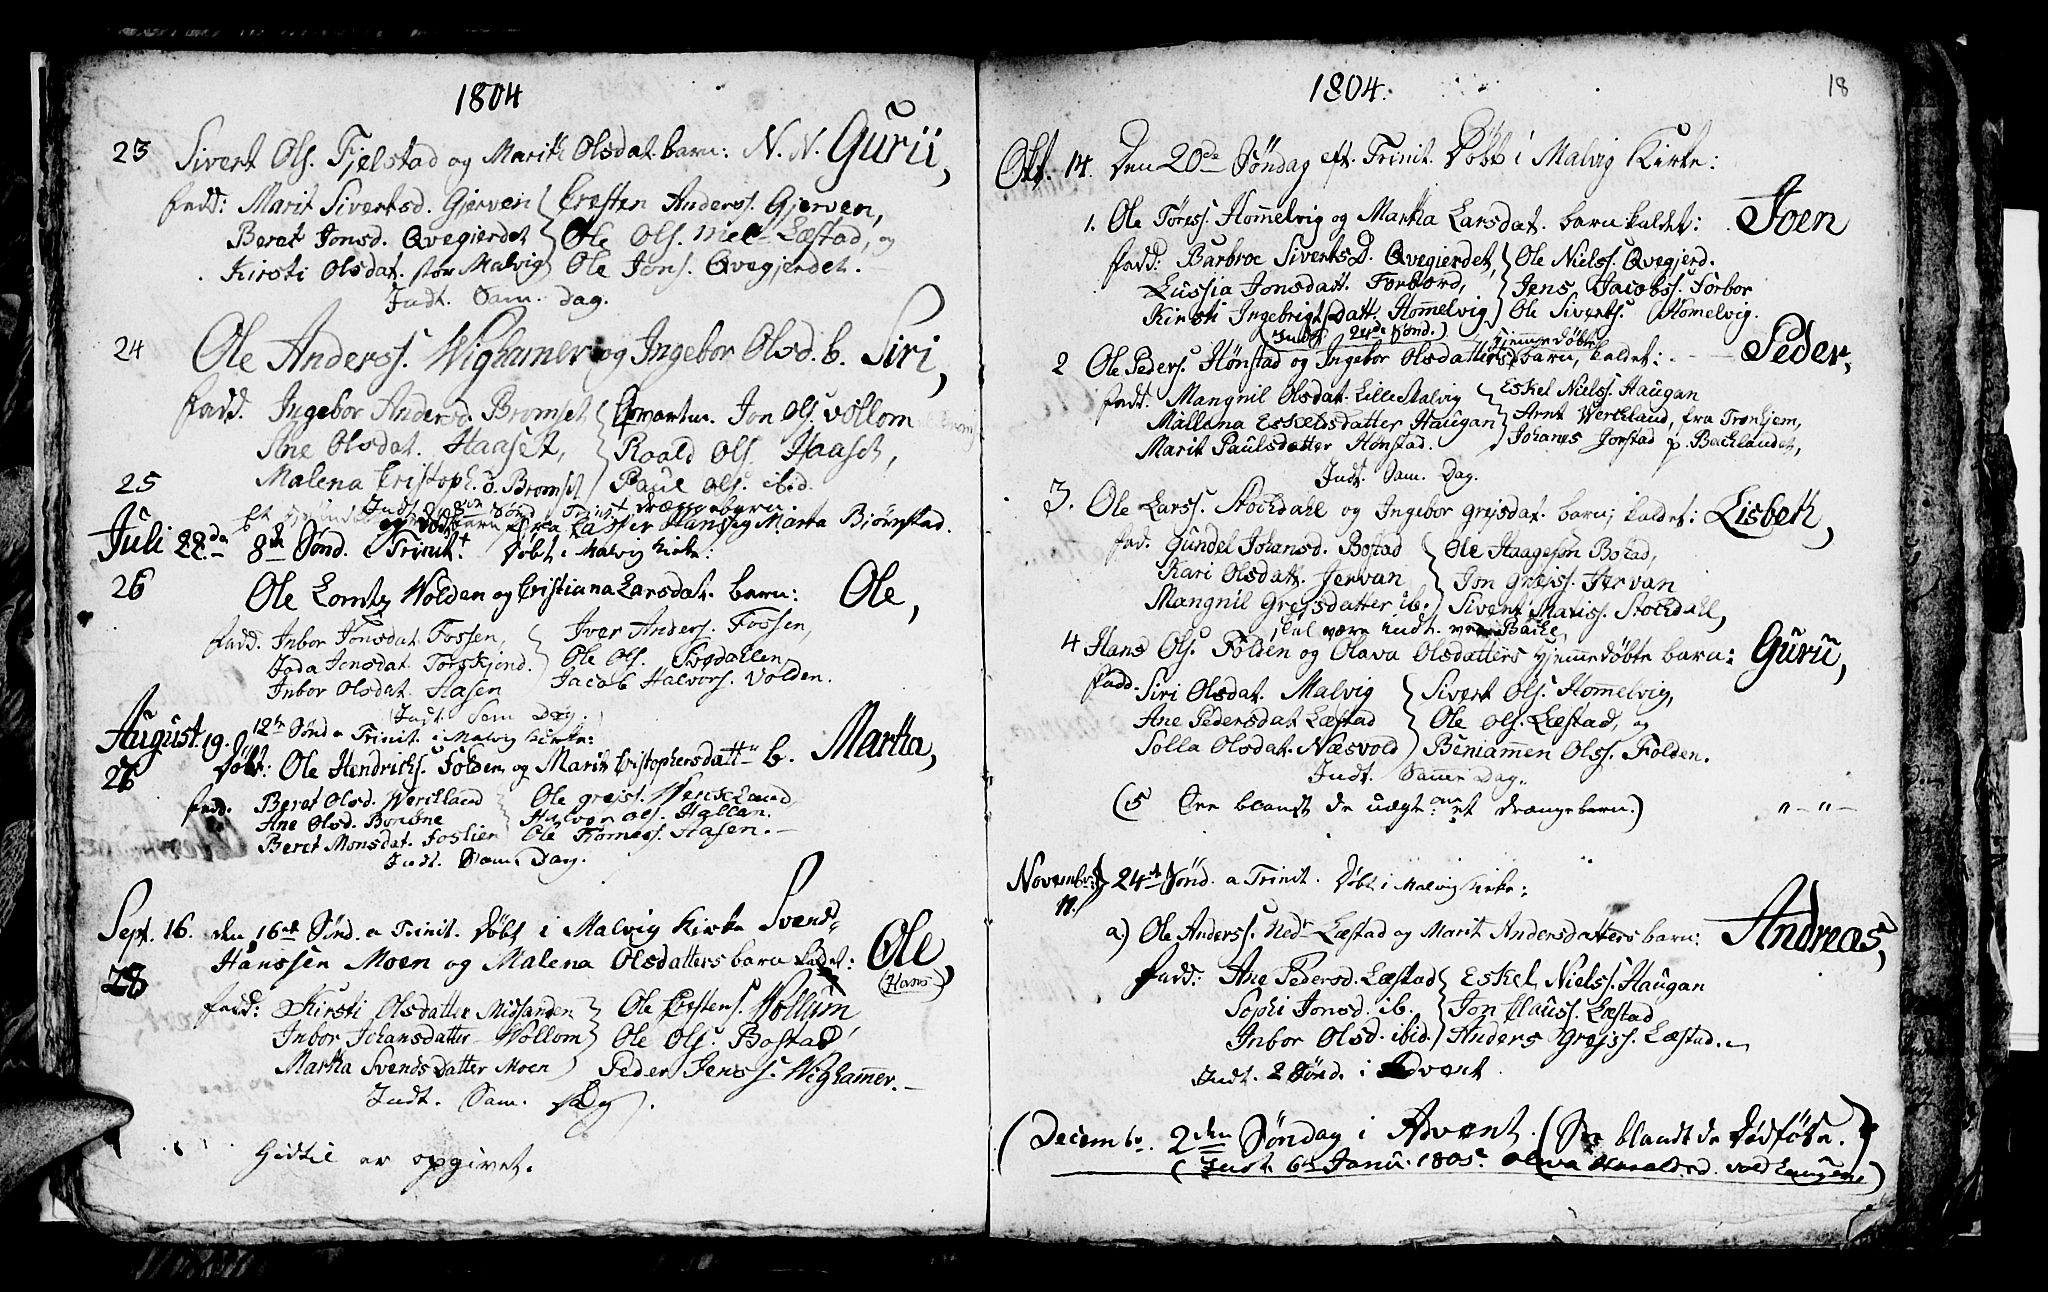 1804
23 Sivert Ols. Fjelstad og Marith Olsdat. barn: N. N. Gurii,
fadd: Marit Sivertsd. Gjerven Cresten Anderss. Gjerven,
Berat Jonsd. Qvegjerdet Ole Ols. Læstad, og
Kirsti Olsdat. stor Malvig Ole Jons. Qvegjerdet.
Indt. Sam. Dag.
24 Ole Anderss. Wighamer og Ingebor Olsd. b. Siri,
fadd. Ingebor Andersd. Bromset Jon Ols. Vollom
Ane Olsdat. Haaset, Roald Ols. Haaset,
Malena Cristoph. d. Bromset Paul Ols. ibid.
25
Juli 22da 8de Sønd. a Trinit. Døbt i Malvig Kirke:
26 Ole Lomtz Wolden og Cristiana Larsdat. barn: Ole,
fadd. Inbor Jonsdat. Fossen, Iver Anders. Fossen,
Inda Jonsdat. Torskjond. Ole Ols. Svedahlen
Inbor Olsdat. Hasen Jacob Halvors. Volden.
Indt. Sam Dag.
August. 19. 12te Sønd a Trinit. i Malvig Kirke:
Døbt: Ole Hendrichs. Folden og Marit Cristophersdatt b. Martha,
27 fadd. Berat Olsd. Werckland Ole grejs.
Ane Olsd. Halvor Ols. Hallan.
Beret Monsdat. Ole Tomess. Hasen.
Indt. Sam. Dag.
Sept. 16. den 16de Sønd. a Trinit. Døbt i Malvig Kirke Svend
28 Hanssen Moen og Malena Olsdatters barn kaldet: Ole,
(Hans)
fadd: Kirsti Olsdatter Midsanden Ole Crestens. Vollum
Inbor Johansdatter Wollom Ole Ols. Bostad
Martha Svends Datter Moen Peder Jenss. Wighamer.
Indt. Sam. Dag.
Hidtil er opgivet.
1804. 18
Okt. 14. Den 20de Søndag eft. Trinit. Døbt i Malvig Kirke:
1. Ole Toress. Hommelvig og Martha Larsdat. barn kaldet: Joen
fadd: Barbroe Siverts D. Qvegierdet, Ole Nielss. Qvegjerd.
Lussia Jonsdatt. Forbord, Jens Jacobss. Forbor
Kirsti Ingebrigt Datt. Hommelvig Ole Siverts. Homelvig.
(Indt. 24de Sønd.) hjemmedøbte
2 Ole Peders. Hønstad og Ingebor Olsdatters barn, kaldet: Peder,
fadd. Mangnil Olsdat. Lille Malvig Eskel Nielss. Haugan
Mallena Eskeldsdatter Haugan Arnt Werkland, fra Tronhjem,
Marit Paulsdatter Hønstad. Johanes Jonstad p. Bachlandet,
Indt. Sam. Dag.
3. Ole Larss. Stochdahl og Ingebor grejsdat. barn; kaldet: Lisbeth,
fad. Gundel Johansd. Bostad Ole Haagesøn Bostad,
Kari Olsdatt. Jervan Jon grejss. Jervan
Mangnil Grejsdatter ib. Sivert Mariss. Stochdahl,
skal være indt. ved Bache
4 Hans Ols. Folden og Olava Olsdatters hjemmedøbte barn: Guru,
fadd. Siri Olsdat. Malvig Sivert Ols. Hommelvig,
Ane Pedersdat. Læstad Ole Ols. Læstad, og
Solla Olsdat. Næsvold Beniamen Olss. Folden.
Indt. Samme Dag.
(5 See blandt de uægte et drængebarn.) " - " -
Novembr. 11. 24de Sønd. a Trinit. Døbt i Malvig Kirke:
a) Ole Anderss. Nedr Læstad og Marit Andersdatters barn: Andreas,
fadd: Ane Pedersd. Læstad Eskel Nielss. Haugan
Sophi Jonsd. ib. Jon Clauss. Læstad
Inbor Olsd. ibid. Anders Grejss. Læstad.
Indt. 2 Sønd. i Advent.
(Decembr. 2den Søndag i Advent. (See blandt de Dødfødte.)
(Indt. 6te Janu. 1805.